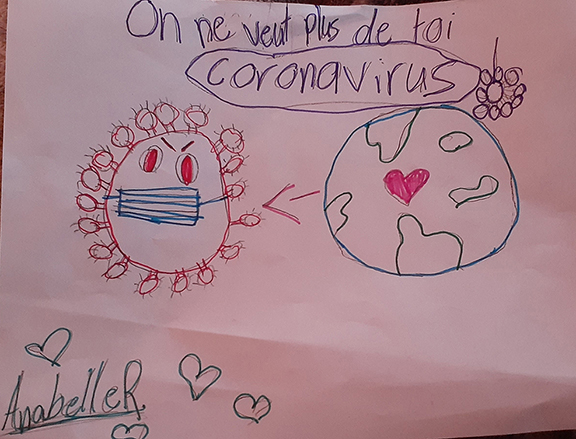 On ne veut plus de toi
coronavirus
Anabelle R.